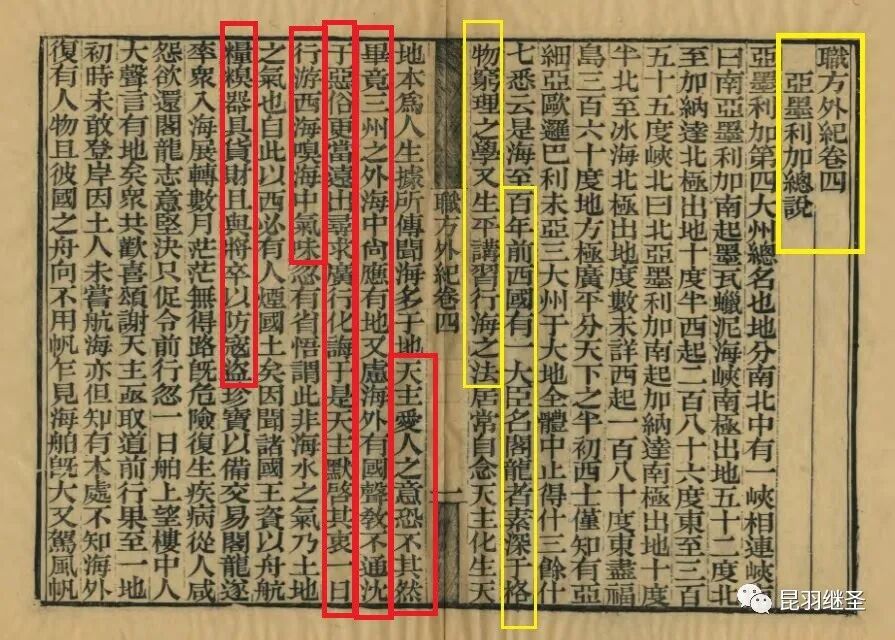 職方外紀卷四
亞墨利加總說
亞墨利加第四大州總名也地分南北中有一峽相連峽南
曰南亞墨利加南起墨瓦蠟泥海峽南極出地五十二度北
至加納達北極出地十度半西起二百八十六度東至三百
五十五度峽北曰北亞墨利加南起加納達南極出地十度
半北至冰海北極出地度數未詳西起一百八十度東盡福
島三百六十度地方極廣平分天下之半初西士僅知有亞
細亞歐邏巴利未亞三大州于大地全體中止得什三餘什
七悉云是海至百年前西國有一大臣名閣龍者素深于格
物窮理之學又生平講習行海之法居常自念天主化生天
職方外紀卷四
一
地本爲人生據所傳聞海多于地天主愛人之意恐不其然
畢竟三州之外海中尚應有地又慮海外有國聲教不通沈
于惡俗更當遠出尋求廣行化誨于是天主默啓其衷一日
行游西海嗅海中氣味忽有省悟謂此非海水之氣乃土地
之氣也自此以西必有人煙國土矣因聞諸國王資以舟航
糧糗器具貨財且與將卒以防寇盜珍寶以備交易閣龍遂
率衆入海展轉數月茫茫無得路既危險復生疾病從人咸
怨欲還閣龍志意堅決只促令前行忽一日舶上望樓中人
大聲言有地矣衆共歡喜頌謝天主亟取道前行果至一地
初時未敢登岸因土人未嘗航海亦但知有本處不知海外
復有人物且彼國之舟向不用帆乍見海舶既大又駕風帆
昆羽继圣